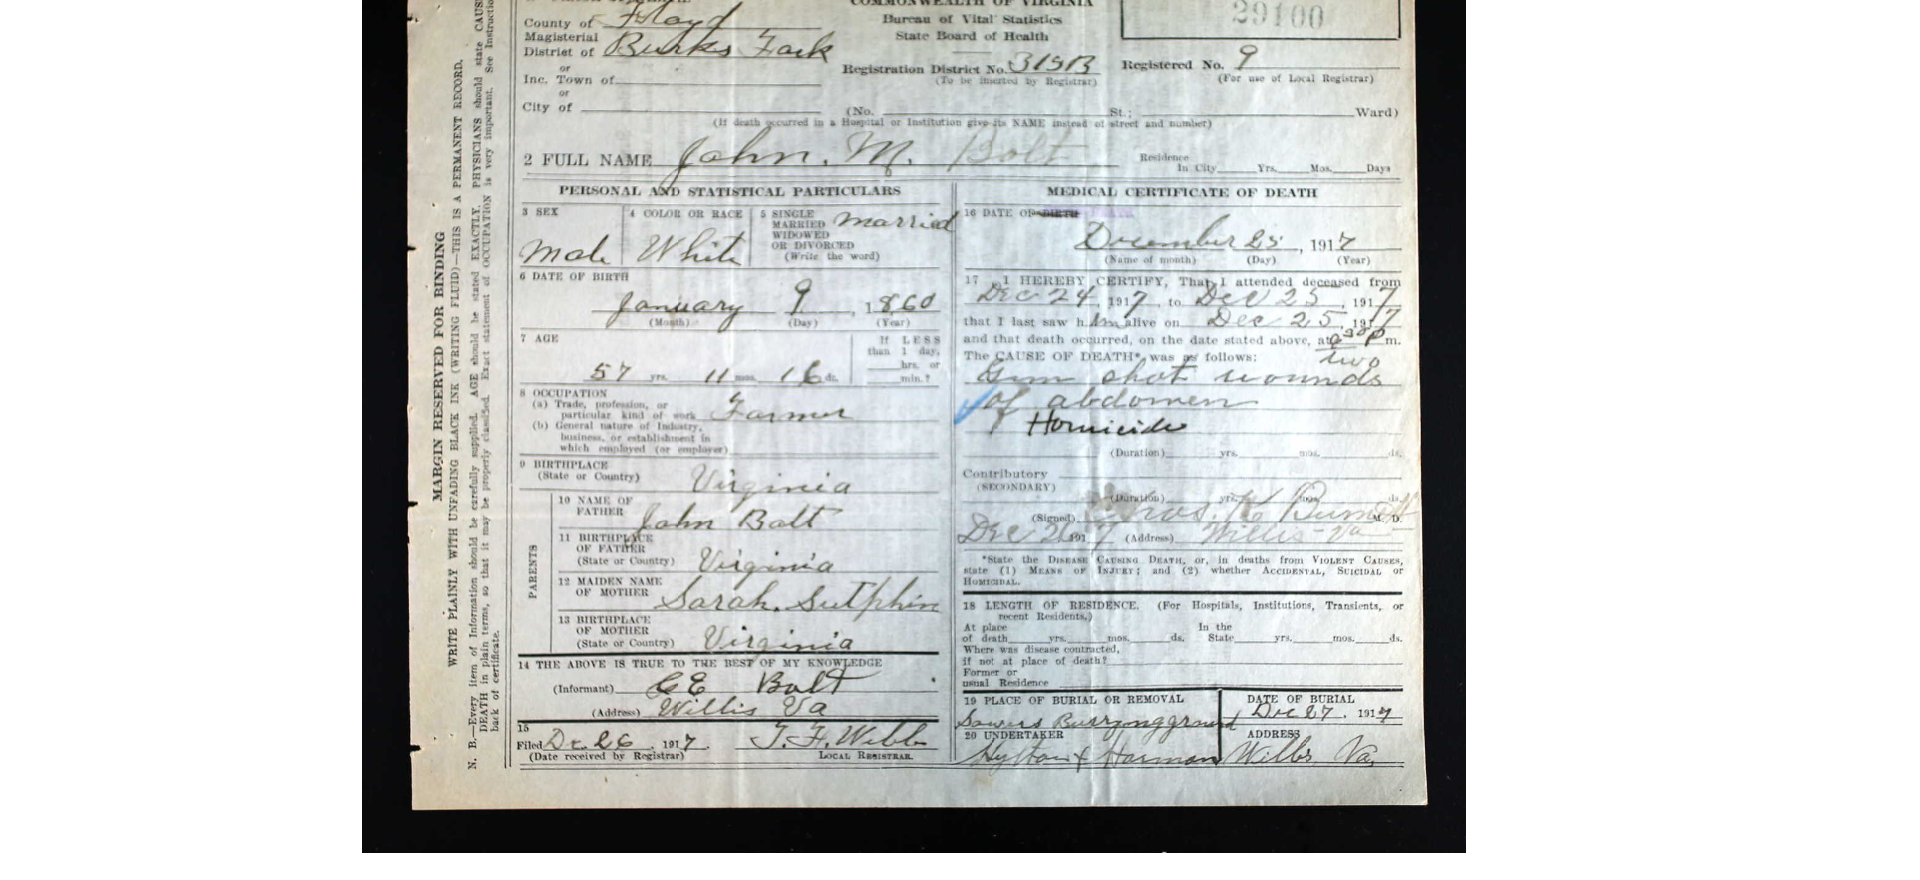 COMMONWEALTH OF VIRGINIA
29100
County of Floyd
Bureau of Vital Statistics
State Board of Health
Magisterial
District of Burks Fork
Registration District No. 315B
Registered No. 9
(To be inserted by Registrar)
(For use of Local Registrar)
or
Inc. Town of
or
City of (No. St.; Ward)
(If death occurred in a Hospital or Institution give its NAME instead of street and number)
2 FULL NAME John. M. Bolt
Residence
In City Yrs. Mos. Days
PERSONAL AND STATISTICAL PARTICULARS
3 SEX
Male
4 COLOR OR RACE
White
5 SINGLE
MARRIED
WIDOWED
OR DIVORCED
(Write the word)
married
6 DATE OF BIRTH
January 9, 1860
(Month) (Day) (Year)
7 AGE
57 yrs. 11 mos. 16 ds.
If LESS
than 1 day,
hrs. or
min.?
8 OCCUPATION
(a) Trade, profession, or
particular kind of work Farmer
(b) General nature of Industry,
business, or establishment in
which employed (or employer)
9 BIRTHPLACE
(State or Country) Virginia
PARENTS
10 NAME OF
FATHER John Bolt
11 BIRTHPLACE
OF FATHER
(State or Country) Virginia
12 MAIDEN NAME
OF MOTHER Sarah. Sutphin
13 BIRTHPLACE
OF MOTHER
(State or Country) Virginia
14 THE ABOVE IS TRUE TO THE BEST OF MY KNOWLEDGE
(Informant) G E Bolt
(Address) Willis Va
15
Filed Dec. 26, 1917 T. F. Webb
(Date received by Registrar) LOCAL REGISTRAR.
MEDICAL CERTIFICATE OF DEATH
16 DATE OF BIRTH DEATH
December 25, 1917
(Name of month) (Day) (Year)
17 I HEREBY CERTIFY, That I attended deceased from
Dec 24, 1917, to Dec 25, 1917
that I last saw him alive on Dec 25, 1917
and that death occurred, on the date stated above, at m.
The CAUSE OF DEATH* was as follows: two
Gun shot wounds
of abdomen
Homicide
(Duration) yrs. mos. ds.
Contributory
(SECONDARY)
(Duration) yrs. mos. ds.
(Signed) M. D.
Dec 26 1917 (Address) Willis Va
*State the DISEASE CAUSING DEATH, or, in deaths from VIOLENT CAUSES,
state (1) MEANS OF INJURY; and (2) whether ACCIDENTAL, SUICIDAL or
HOMICIDAL.
18 LENGTH OF RESIDENCE. (For Hospitals, Institutions, Transients, or
recent Residents.)
At place In the
of death yrs. mos. ds. State yrs. mos. ds.
Where was disease contracted,
if not at place of death?
Former or
usual Residence
19 PLACE OF BURIAL OR REMOVAL
Sowers Burryngground
DATE OF BURIAL
Dec 27, 1917
20 UNDERTAKER
Hylton & Harman
ADDRESS
Willis Va.
MARGIN RESERVED FOR BINDING
WRITE PLAINLY WITH UNFADING BLACK INK (WRITING FLUID)—THIS IS A PERMANENT RECORD.
N. B.—Every item of Information should be carefully supplied. AGE should be stated EXACTLY. PHYSICIANS should state CAUSE
DEATH in plain terms, so that it may be properly classified. Exact statement of OCCUPATION is very important. See Instructions
back of certificate.